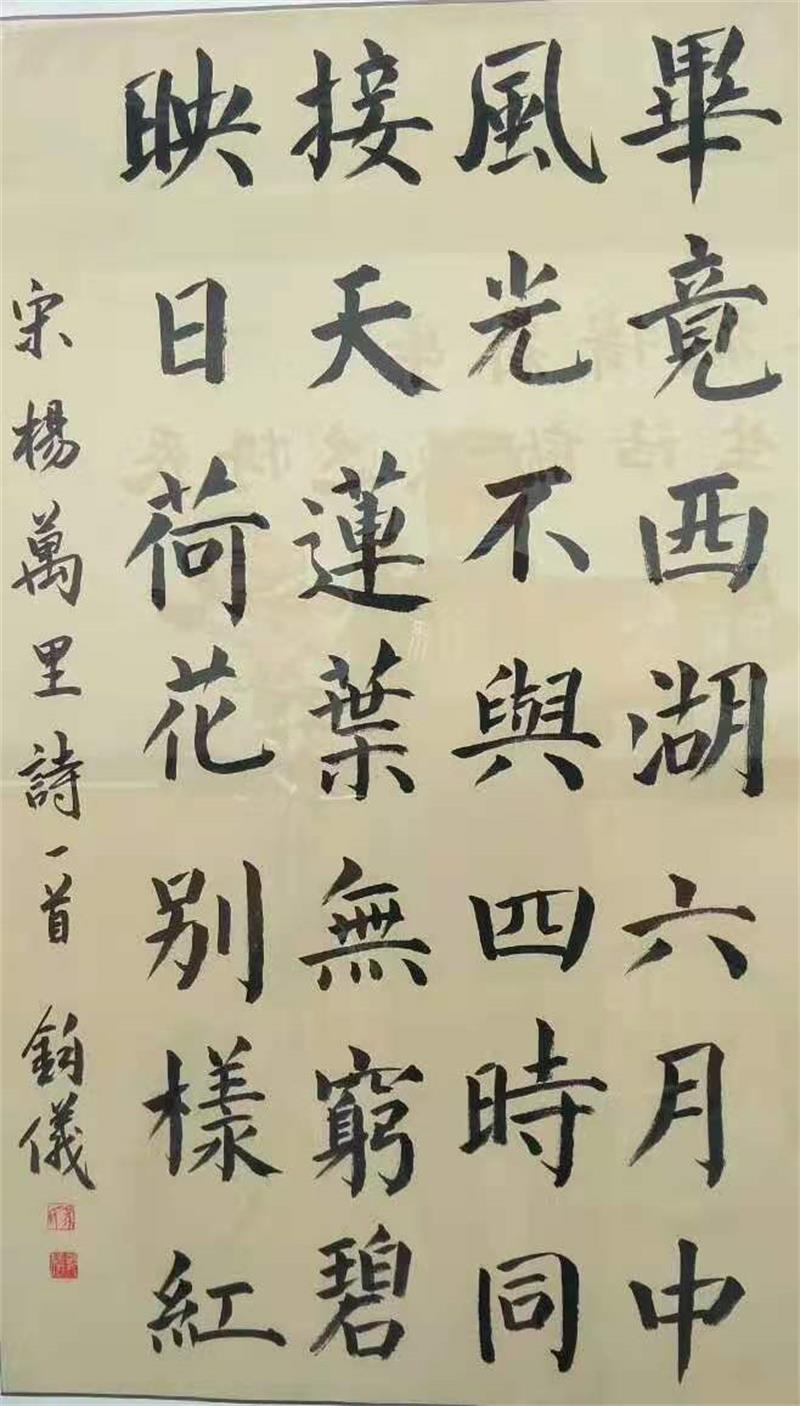 畢竟西湖六月中
風光不與四時同
接天蓮葉無窮碧
映日荷花别樣紅
宋楊萬里詩一首 鈞儀